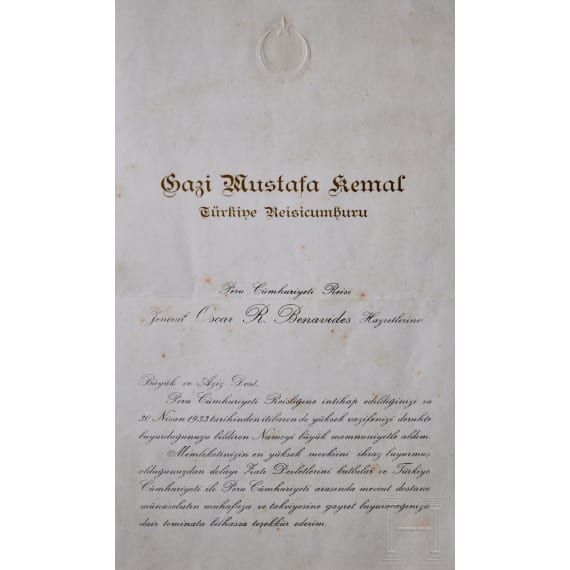 Gazi Mustafa Kemal
Türkiye Reisicumhuru
Peru Cümhuriyeti Reisi
Jeneral Oscar R. Benavides Hazretlerine
Büyük ve Aziz Dost,
Peru Cümhuriyeti Reisliğine intihap edildiğinizi ve
30 Nisan 1933 tarihinden itibaren de yüksek vazifenizi deruhte
buyurduğunuzu bildiren Nameyi büyük memnuniyetle aldım.
Memleketinizin en yüksek mevkiini ihraz buyurmuş
olduğunuzdan dolayı Zatı Devletlerini kutlular ve Türkiye
Cümhuriyeti ile Peru Cümhuriyeti arasında mevcut dostane
münasebatın muhafaza ve takviyesine gayret buyuracağınıza
dair teminata bilhassa teşekkür ederim.